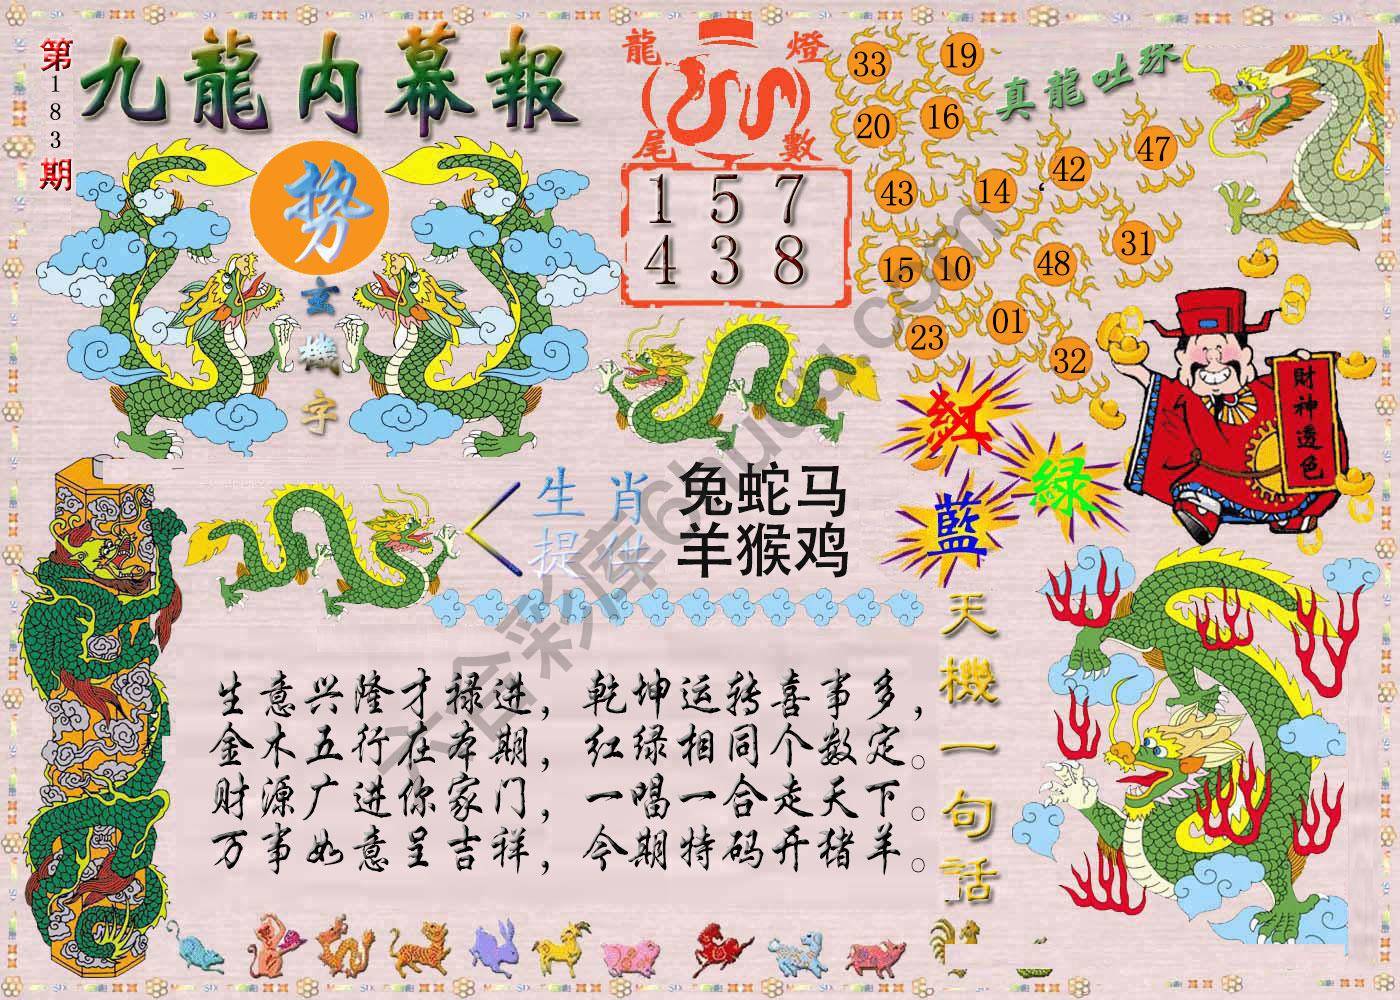 第183期
九龍内幕報
势
玄機字
龍燈尾數
1 5 7
4 3 8
真龍吐珠
33
19
20
16
43
14
42
47
15
10
48
31
23
01
32
財神透色
紅
绿
藍
生肖提供
兔蛇马
羊猴鸡
天機一句話
生意兴隆才禄进，乾坤运转喜事多，
金木五行在本期，红绿相同个数定。
财源广进你家门，一唱一合走天下。
万事如意呈吉祥，今期特码开猪羊。